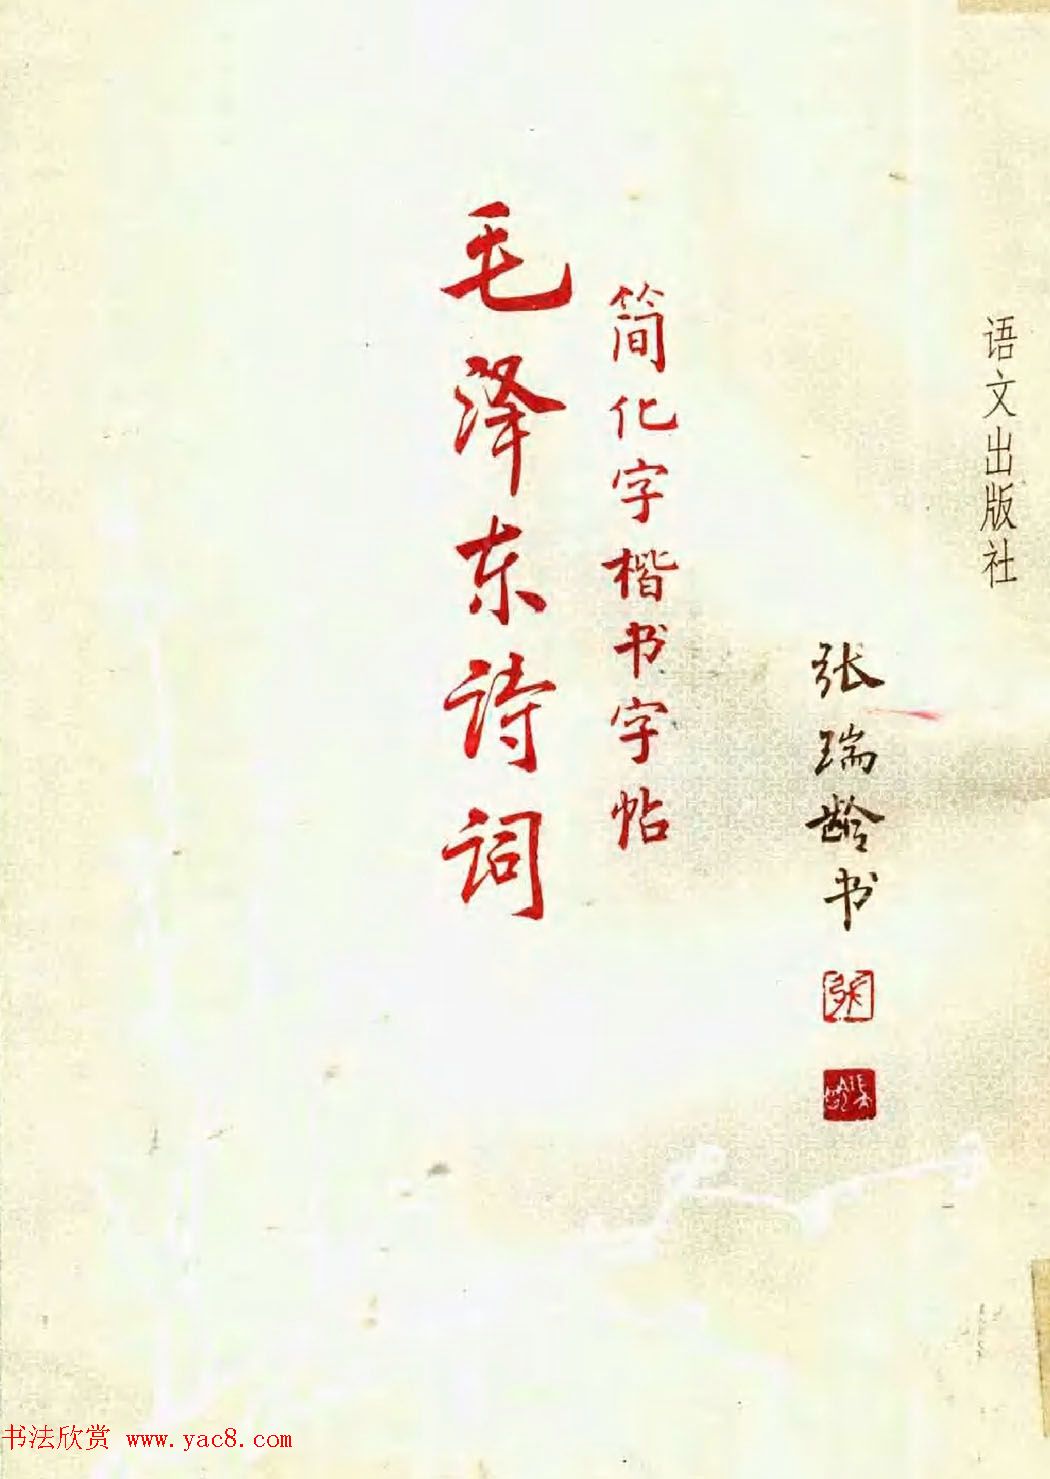 语文出版社
张瑞龄书
简化字楷书字帖
毛泽东诗词
书法欣赏 www.yac8.com